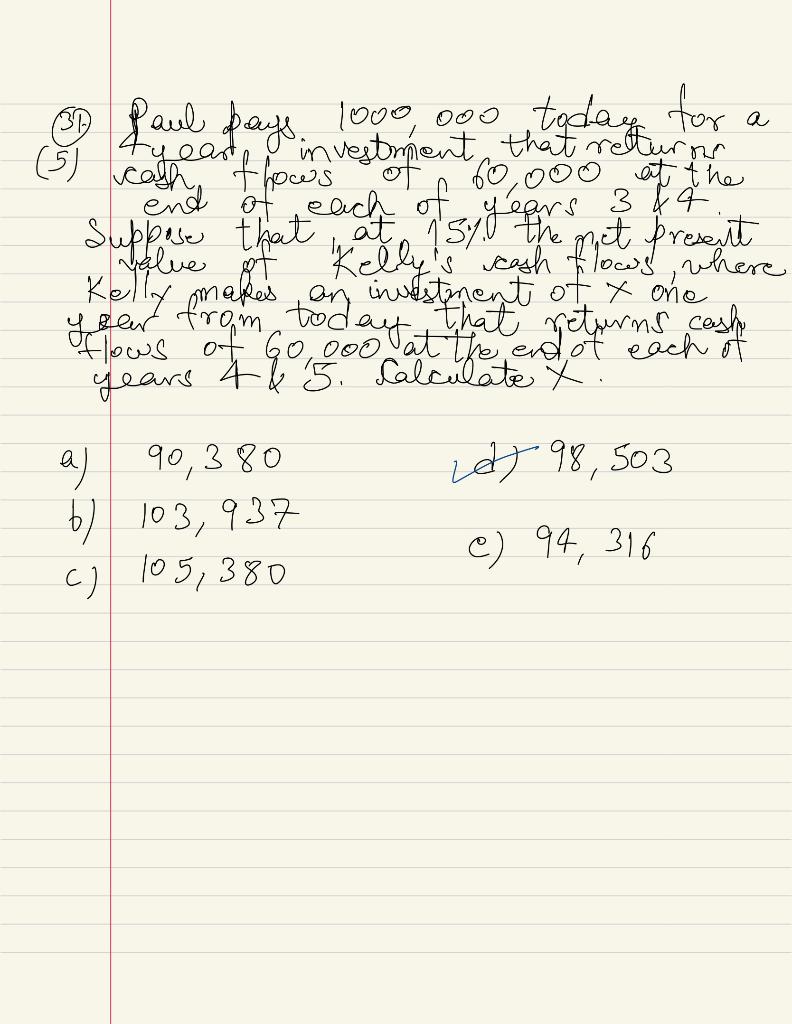 31. Paul pays 1000,000 today for a
(5) 4 year investment that returns
cash flows of 60,000 at the
end of each of years 3 & 4.
Suppose that, at 15% the net present
value of Kelly's cash flows, where
Kelly makes an investment of X one
year from today that returns cash
flows of 60,000 at the end of each of
years 4 & 5. Calculate X.
a) 90,380
d) 98,503
b) 103,937
e) 94,316
c) 105,380